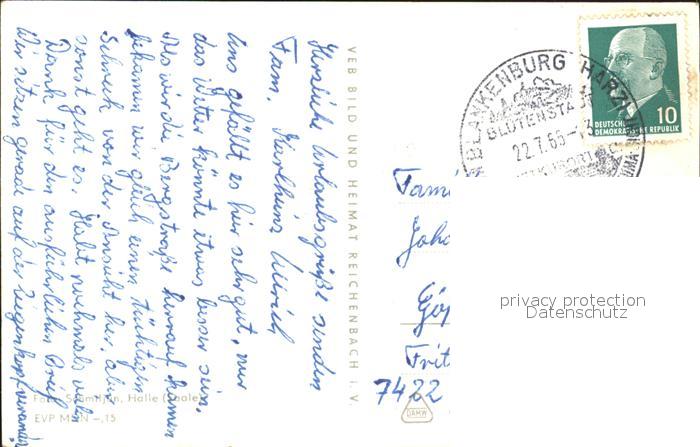 Herzliche Urlaubsgrüße senden
Fam. Karlheinz Ullrich
Uns gefällt es hier sehr gut, nur
das Wetter könnte etwas besser sein.
Als wir die Bergstraße herauf kamen
bekamen wir gleich einen tüchtigen
Schreck von der Ansicht her, aber
sonst geht es. Habt nochmals vielen
Dank für den ausführlichen Brief
Wir sitzen gerade auf der Ziegenkopfveranda
VEB BILD UND HEIMAT REICHENBACH i. V.
Halle (Saale)
EVP MDN –,15
BLANKENBURG HARZ
BLÜTENSTADT
22.7.66
DEUTSCHE
DEMOKRATISCHE REPUBLIK
10
Fami
Joha
Gö
Frit
7422
DAMW
privacy protection
Datenschutz